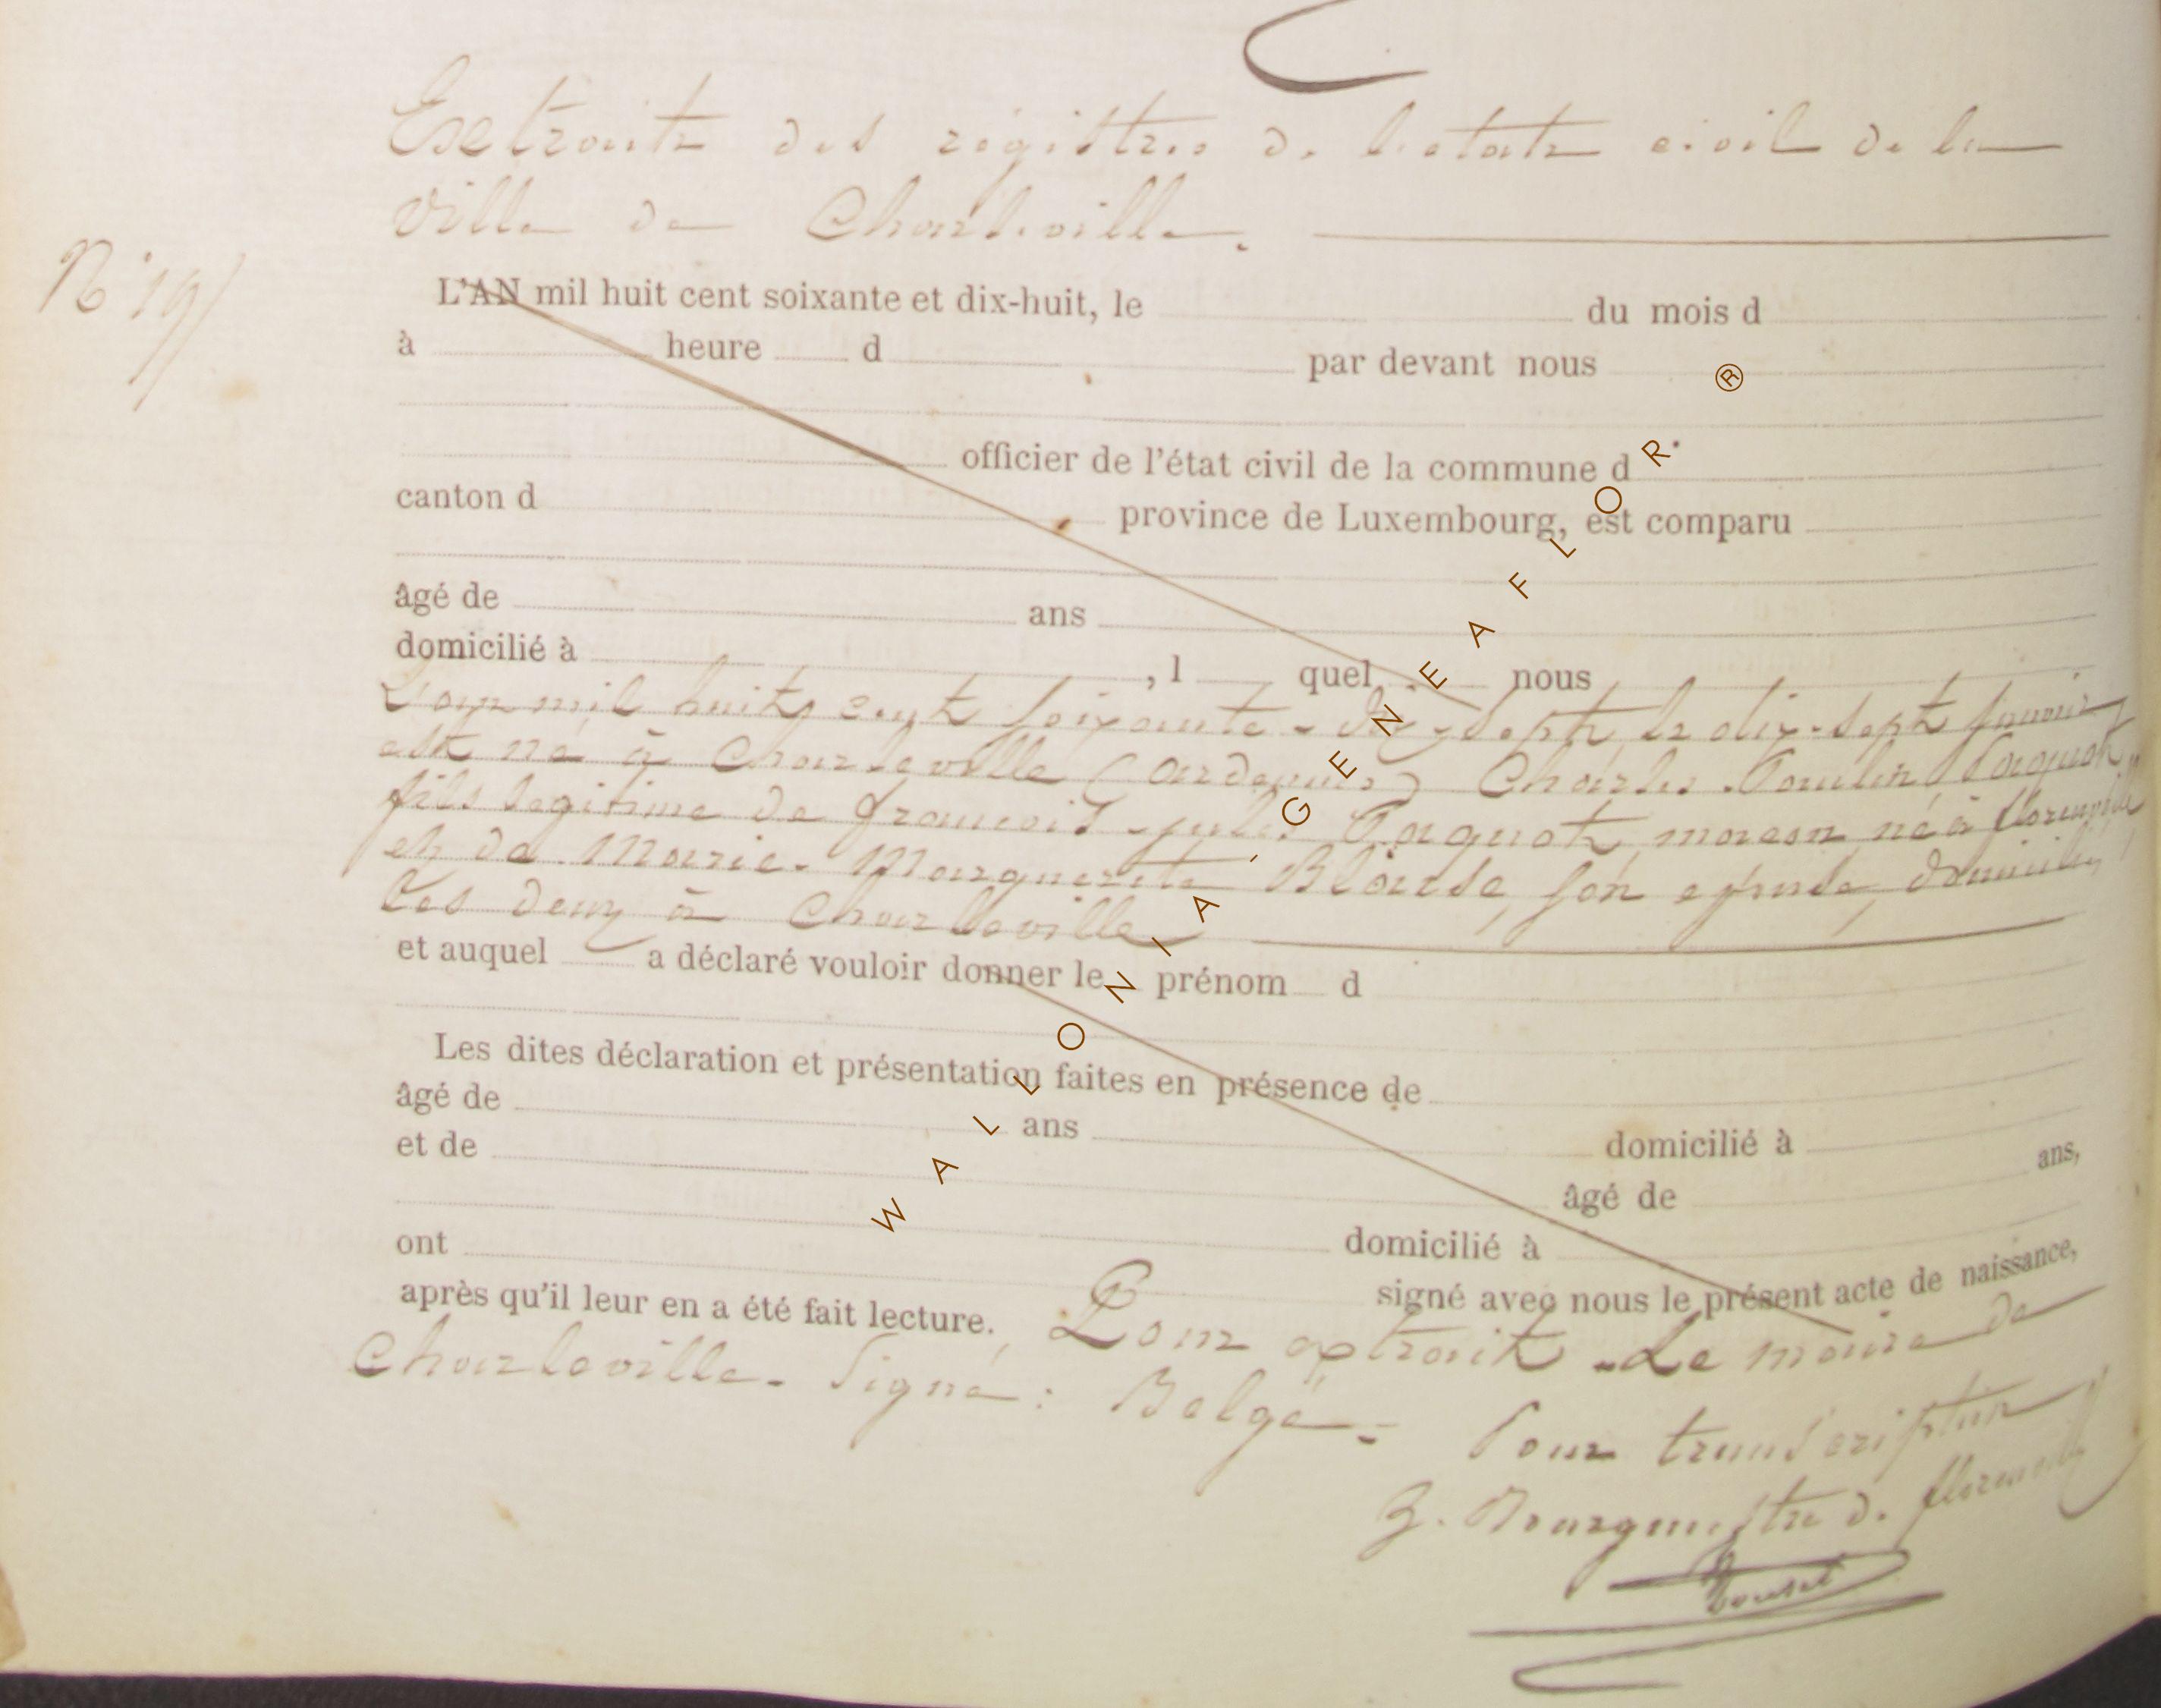 Extrait des régistres de l'etat civil de la
ville de Charleville.
N° 19
L'AN mil huit cent soixante et dix-huit, le du mois d
à heure d par devant nous
officier de l'état civil de la commune d
canton d province de Luxembourg, est comparu
âgé de ans
domicilié à , l quel nous
L'an mil huit cent soixante-dix-sept le dix-sept janvier
est né à Charleville (Ardennes) Charles Paulin Paquot
fils legitime de françois jules Paquot, macon né à florenville
et de Marie-Marguerite Blaise, son epouse, domiciliés
les deux à Charleville
et auquel a déclaré vouloir donner le prénom d
Les dites déclaration et présentation faites en présence de
âgé de ans domicilié à
et de âgé de ans,
domicilié à
ont signé avec nous le présent acte de naissance,
après qu'il leur en a été fait lecture. Pour extrait. Le maire de
Charleville. Signé: Pour transcription
Bourgmestre de florenville
WALLONIA'GENEAFLOR.®